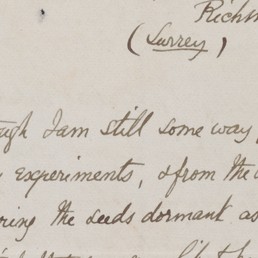 Richm
(Surrey)
ough I am still some way f
experiments, & from the
ring the seeds dormant as